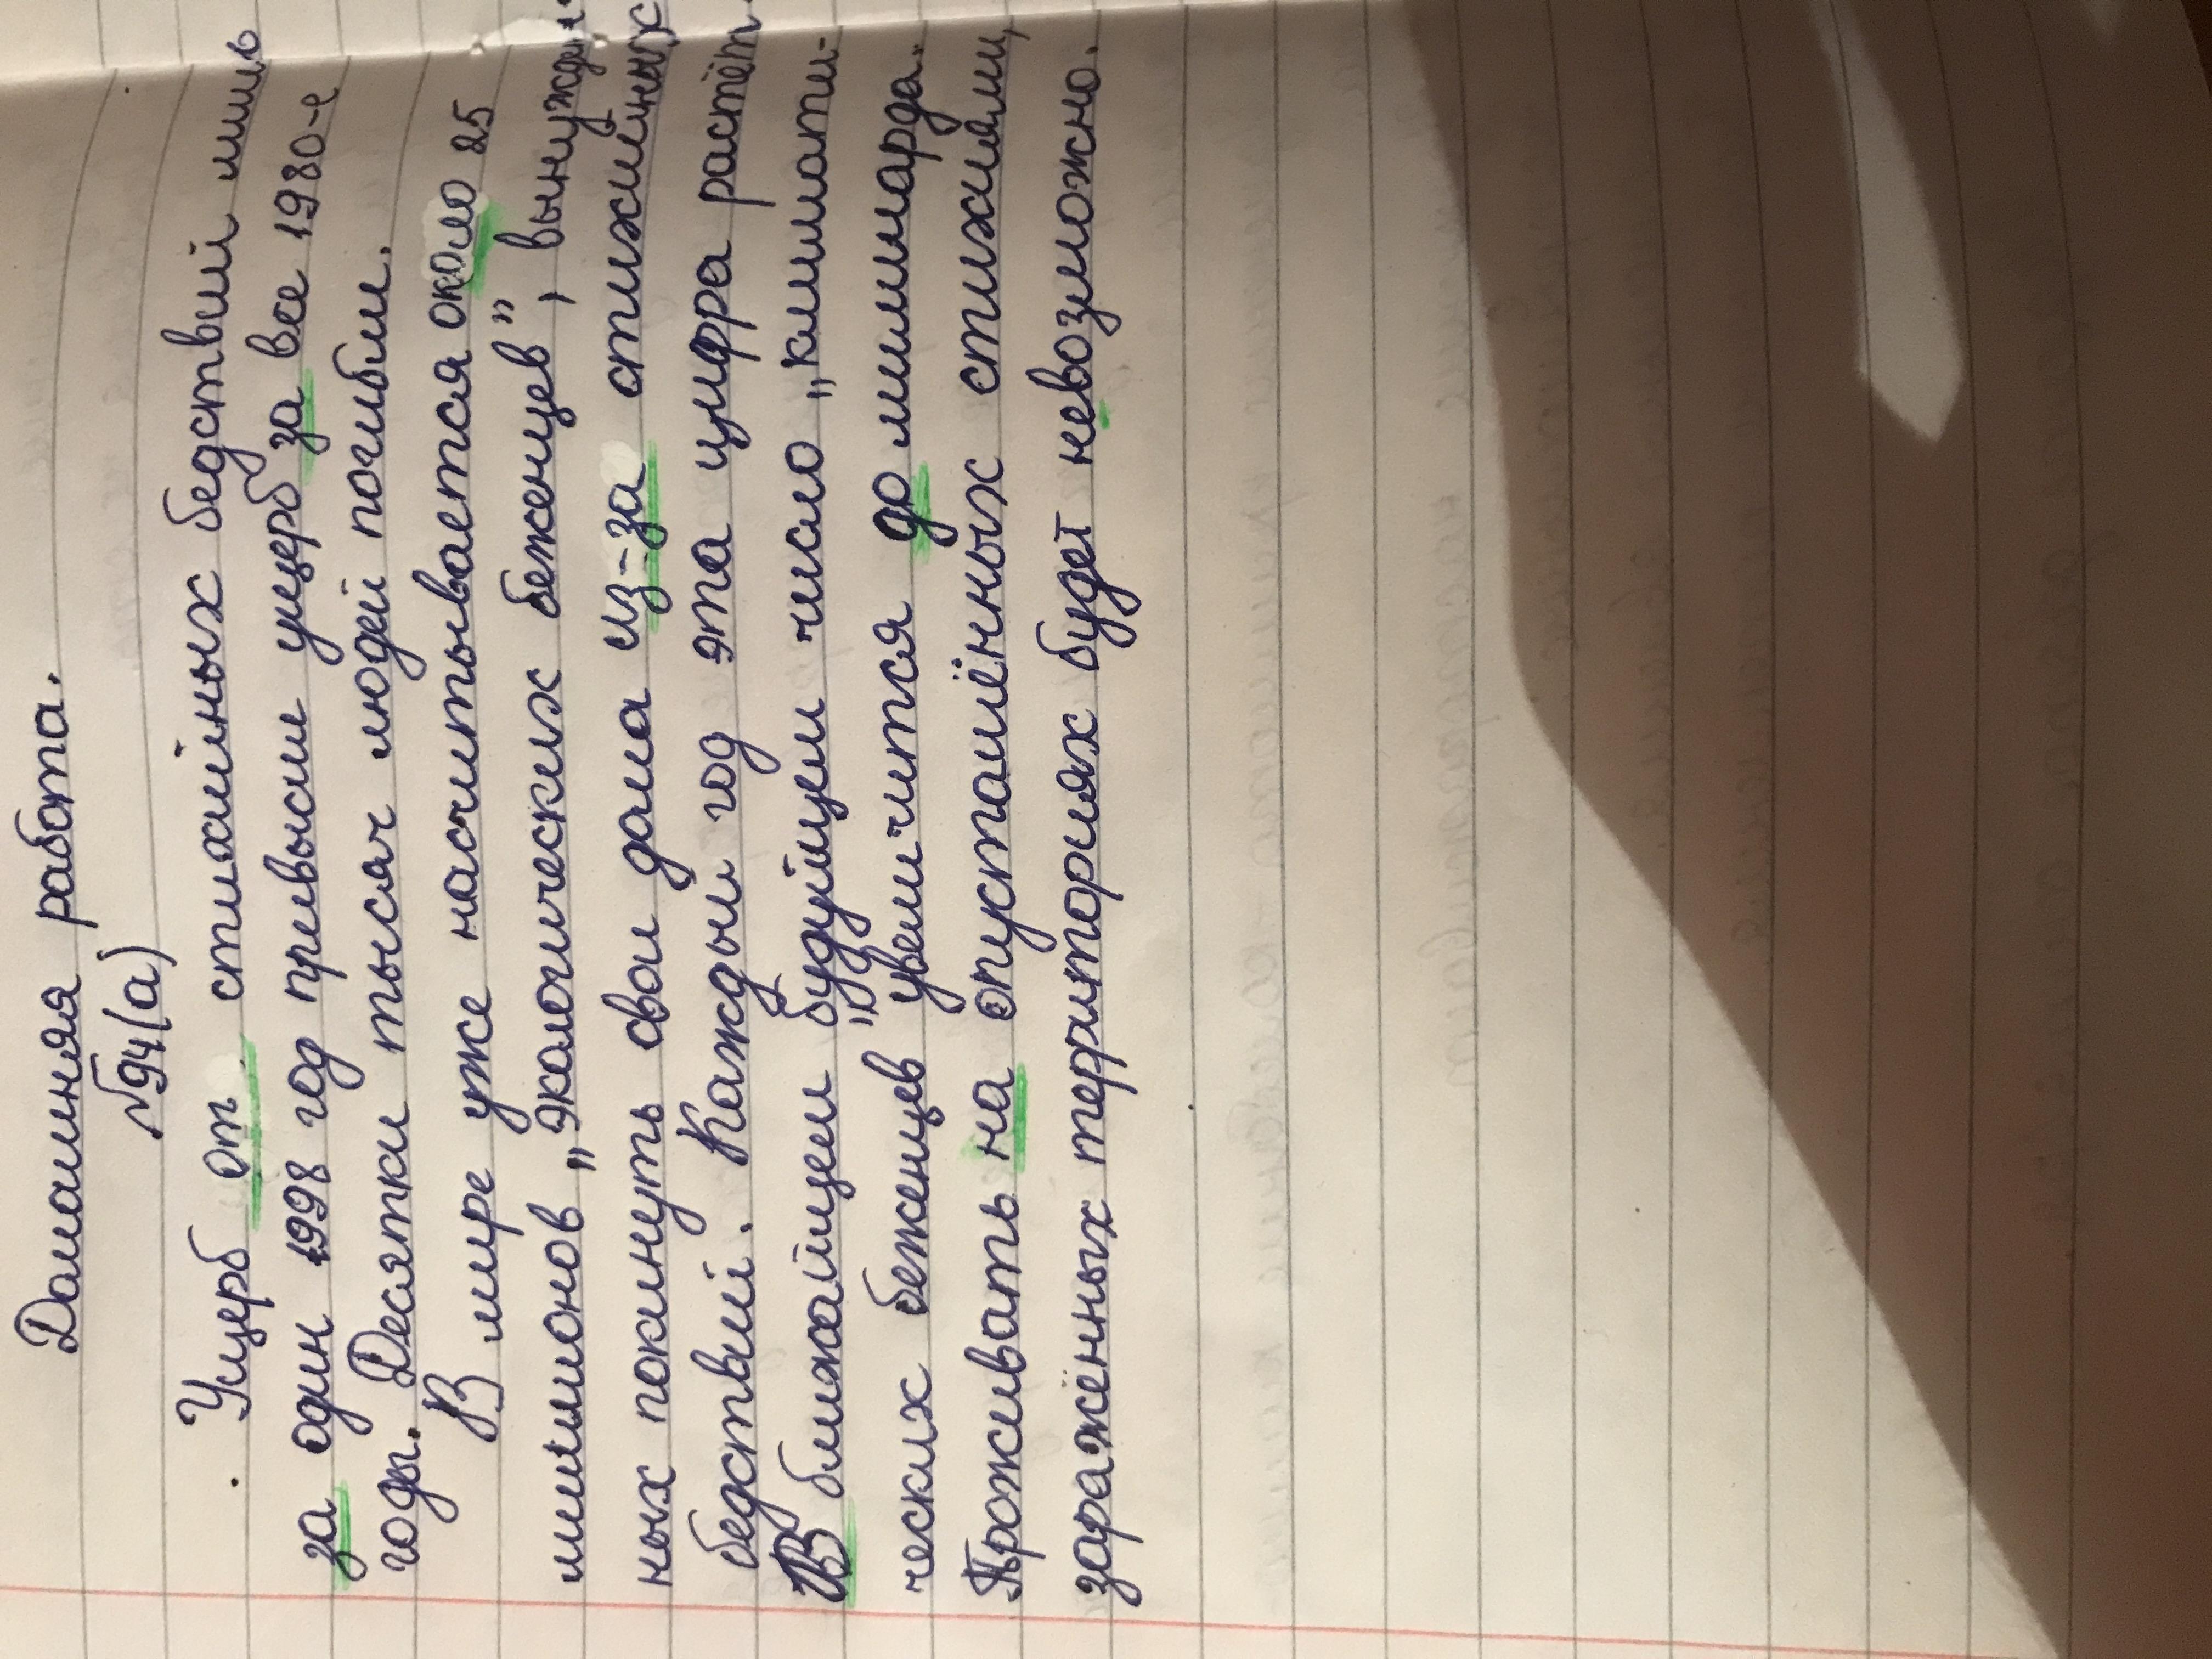 Домашняя работа.
№94(а)
Ущерб от стихийных бедствий лишь
за один 1998 год превысил ущерб за все 1980-е
годы. Десятки тысяч людей погибли.
В мире уже насчитывается около 25
миллионов „экологических беженцев”, вынужден-
ных покинуть свои дома из-за стихийных
бедствий. Каждый год эта цифра растёт.
В ближайшем будующем число „климати-
ческих беженцев” увеличится до миллиарда.
Проживать на опустошённых стихиями,
заражённых территориях будет невозможно.